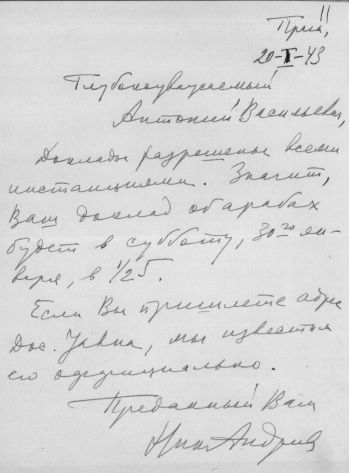 Прага,
20-I-43
Глубокоуважаемый
Антоний Васильевич,
Доклады разрешены всеми
инстанциями. Значит,
Ваш доклад об арабах
будет в субботу, 30го ян-
варя, в 1/2 5.
Если Вы пришлете адрес
Дос. Явна, мы известим
его официально.
Преданный Вам
Ник Андреев